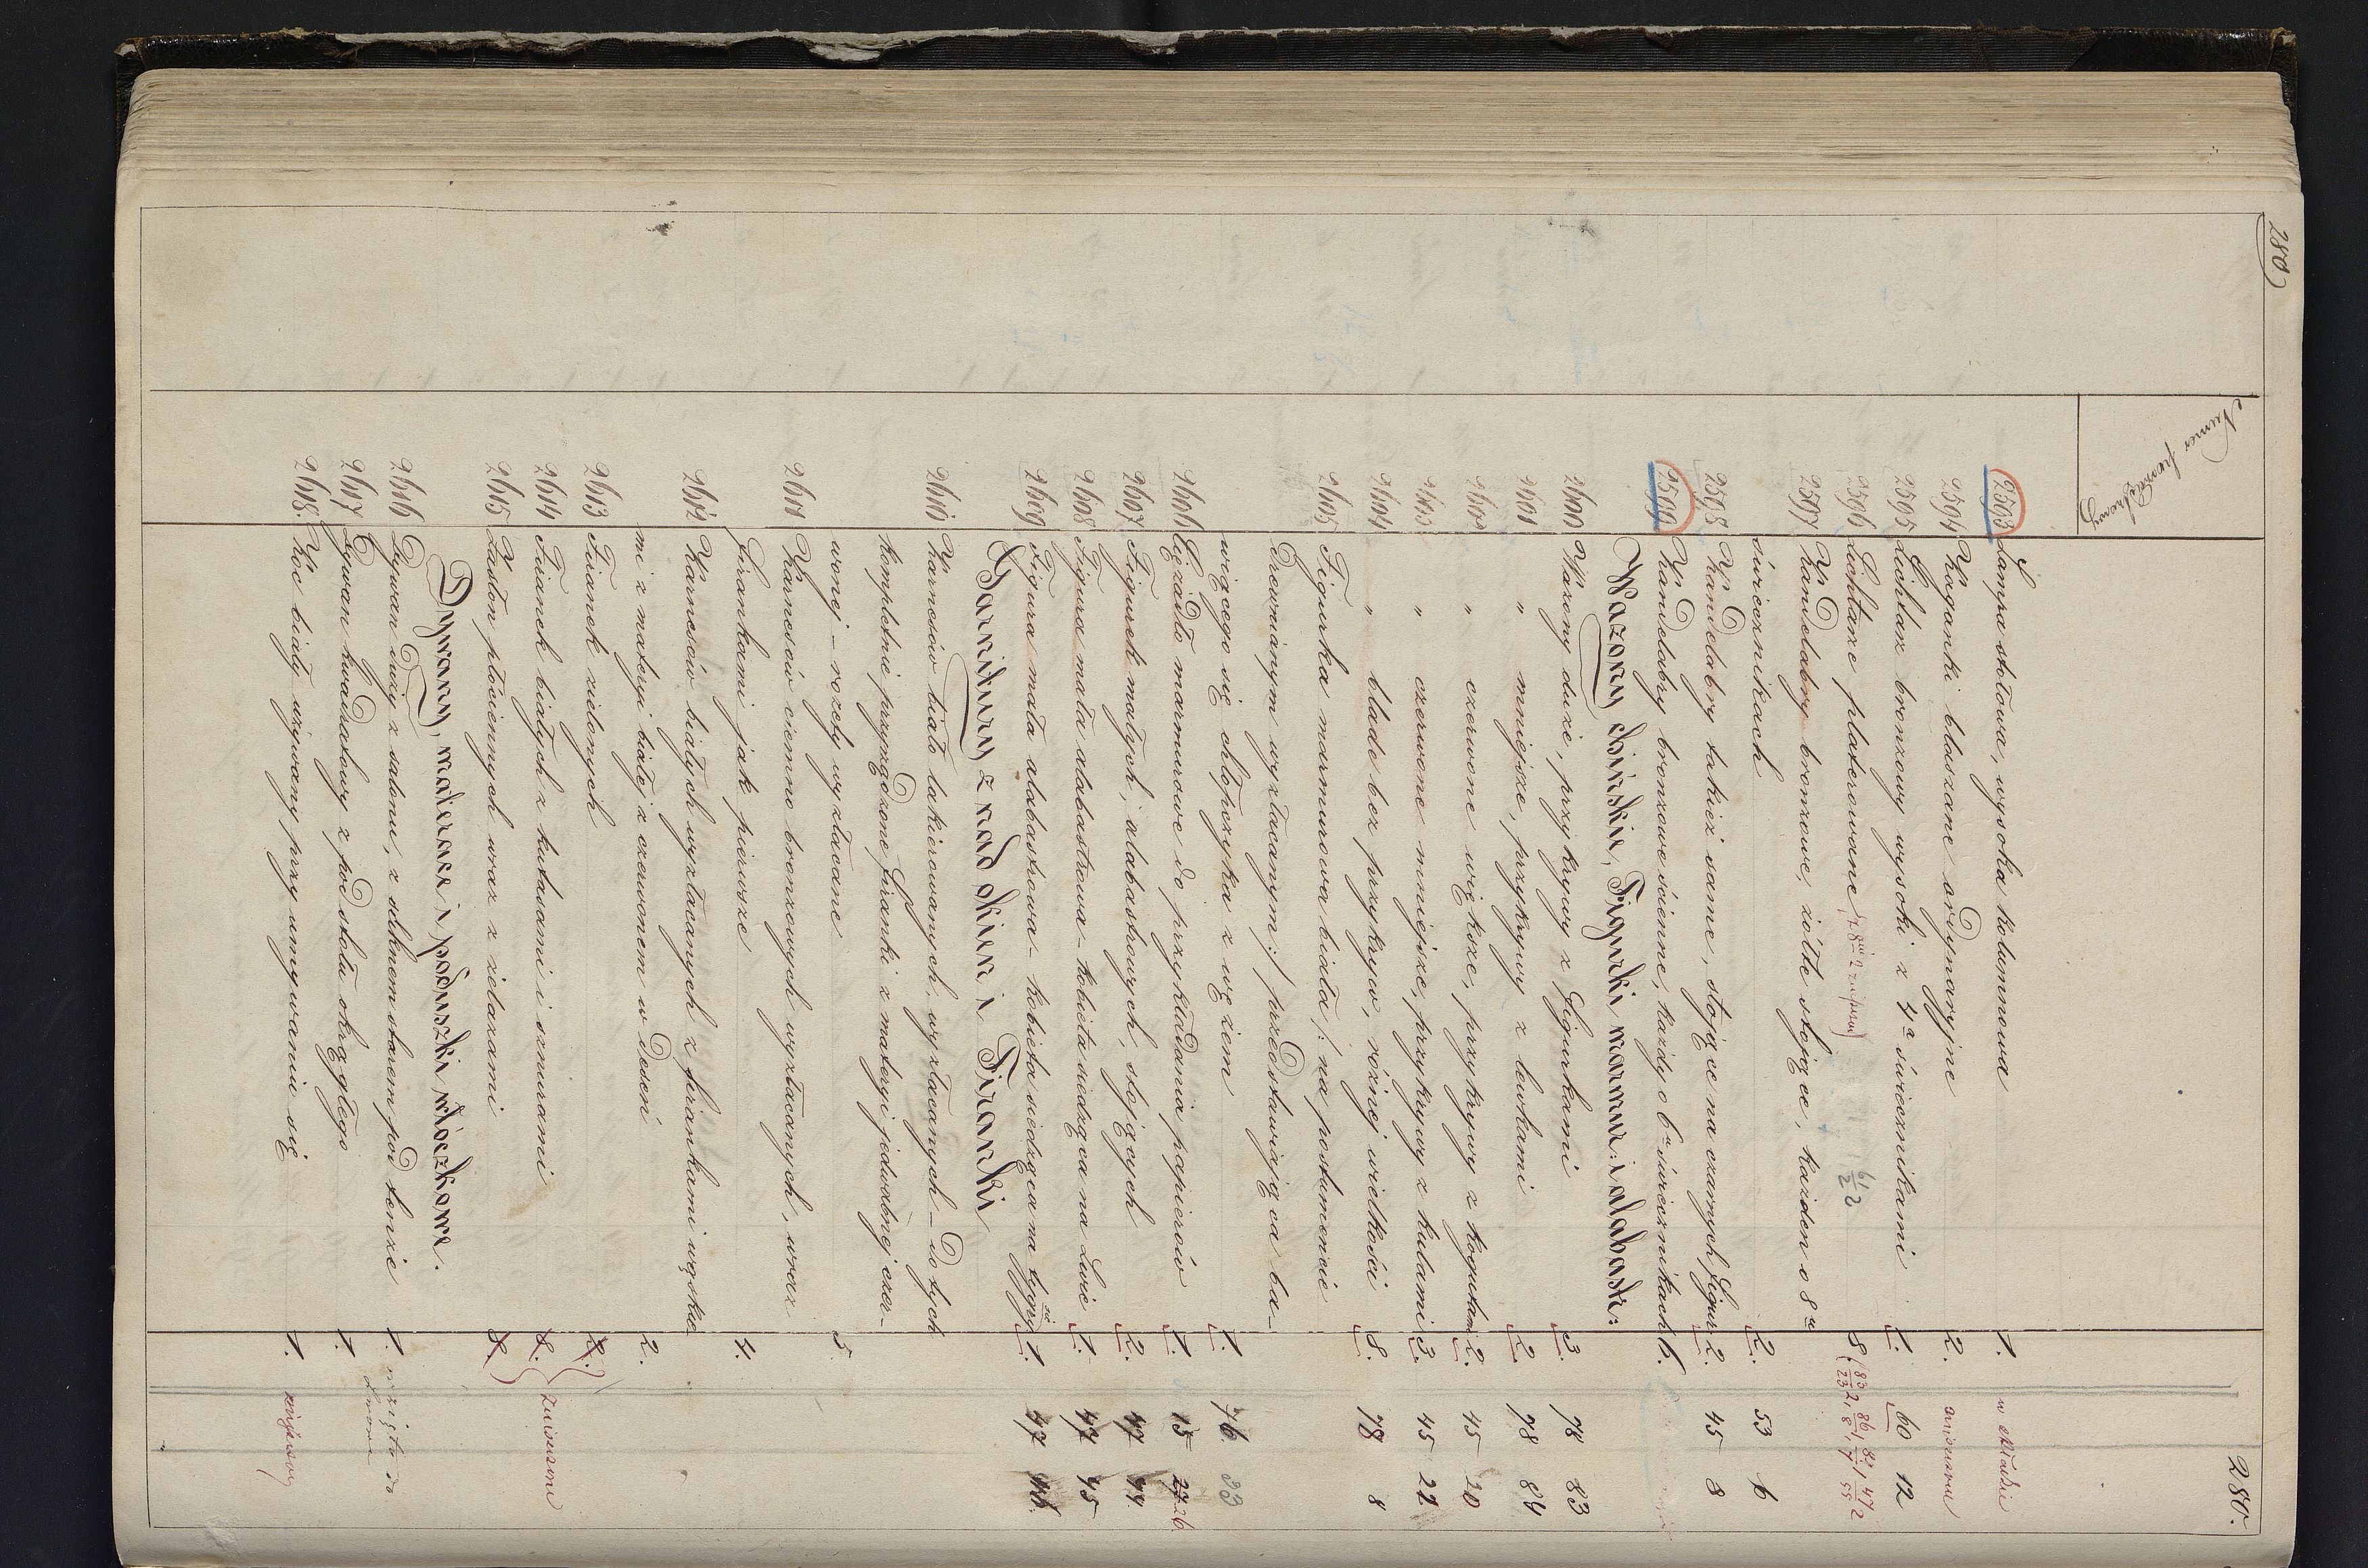 280
280.
Numer porządkowy
2593 Lampa stołowa, wysoka kolumnowa 1. w składzie
2594 Kaganki blaszane ordynaryjne 2. zniszczone
2595 Lichtarz bronzowy wysoki z 4ᵃ świecznikami 1. 60 12
2596 Lichtarze platerowane 8.
2597 Kandelabry bronzowe, żółte stojące, każden o 8ᵘ
świecznikach 2. 53 6
2598 Kandelabry takież same, stojące na czarnych figur. 2. 45 8
2599 Kandelabry bronzowe ścienne, każdy o 6ᵘ świecznikach 6.
Wazony chińskie, Figurki marmur: i alabastr:
2600 Wazony duże, przykrywy z figurkami 3. 78 83
2601 " mniejsze, przykrywy z lewkami 2. 78 84
2602 " czerwone większe, przykrywy z kogutami 2. 45 20
2603 " czerwone mniejsze, przykrywy z kulami 3. 45 21
2604 " blade bez przykryw, różnej wielkości 8. 78 8
2605 Figurka marmurowa biała /: na postumencie
drewnianym wyzłacanym :/ przedstawiająca ba-
wiącego się chłopczyka z wężem 1. 76 33
2606 Ciężadło marmurowe do przykładania papierów 1. 15 27 26
2607 Figurek małych, alabastrowych, stojących 2. 47 44
2608 Figura mała alabastrowa - kobieta siedząca na Lwie 1. 47 45
2609 Figura mała alabastrowa - kobieta siedząca na tygrysie 1. 47 46.
Garnitury z nad okien i Firanki
2610 Karnesów biało lakierowanych, wyzłacanych - do tych
kompletnie przyrządzone firanki z materyi jedwabnej czer-
wonej - rozety wyzłacane 5.
2611 Karnesów ciemno bronzowych wyzłacanych, wraz z
firankami jak pierwsze 4.
2612 Karnesów białych wyzłacanych z firankami wązkie
mi z materyi białej z czerwonem w deseń 2.
2613 Firanek zielonych 2.
2614 Firanek białych z kutasami i sznurami 8. zniszczone
2615 Zasłon płóciennych wraz z żelazami 8.
Dywany, materace i poduszki włóczkowe.
2616 Dywan duży z salonu, z suknem starem pod tenże 1. wzięto do
2617 Dywan kwadratowy z pod stołu okrągłego 1.
2618. Koc biały używany przy umywaniu się 1.